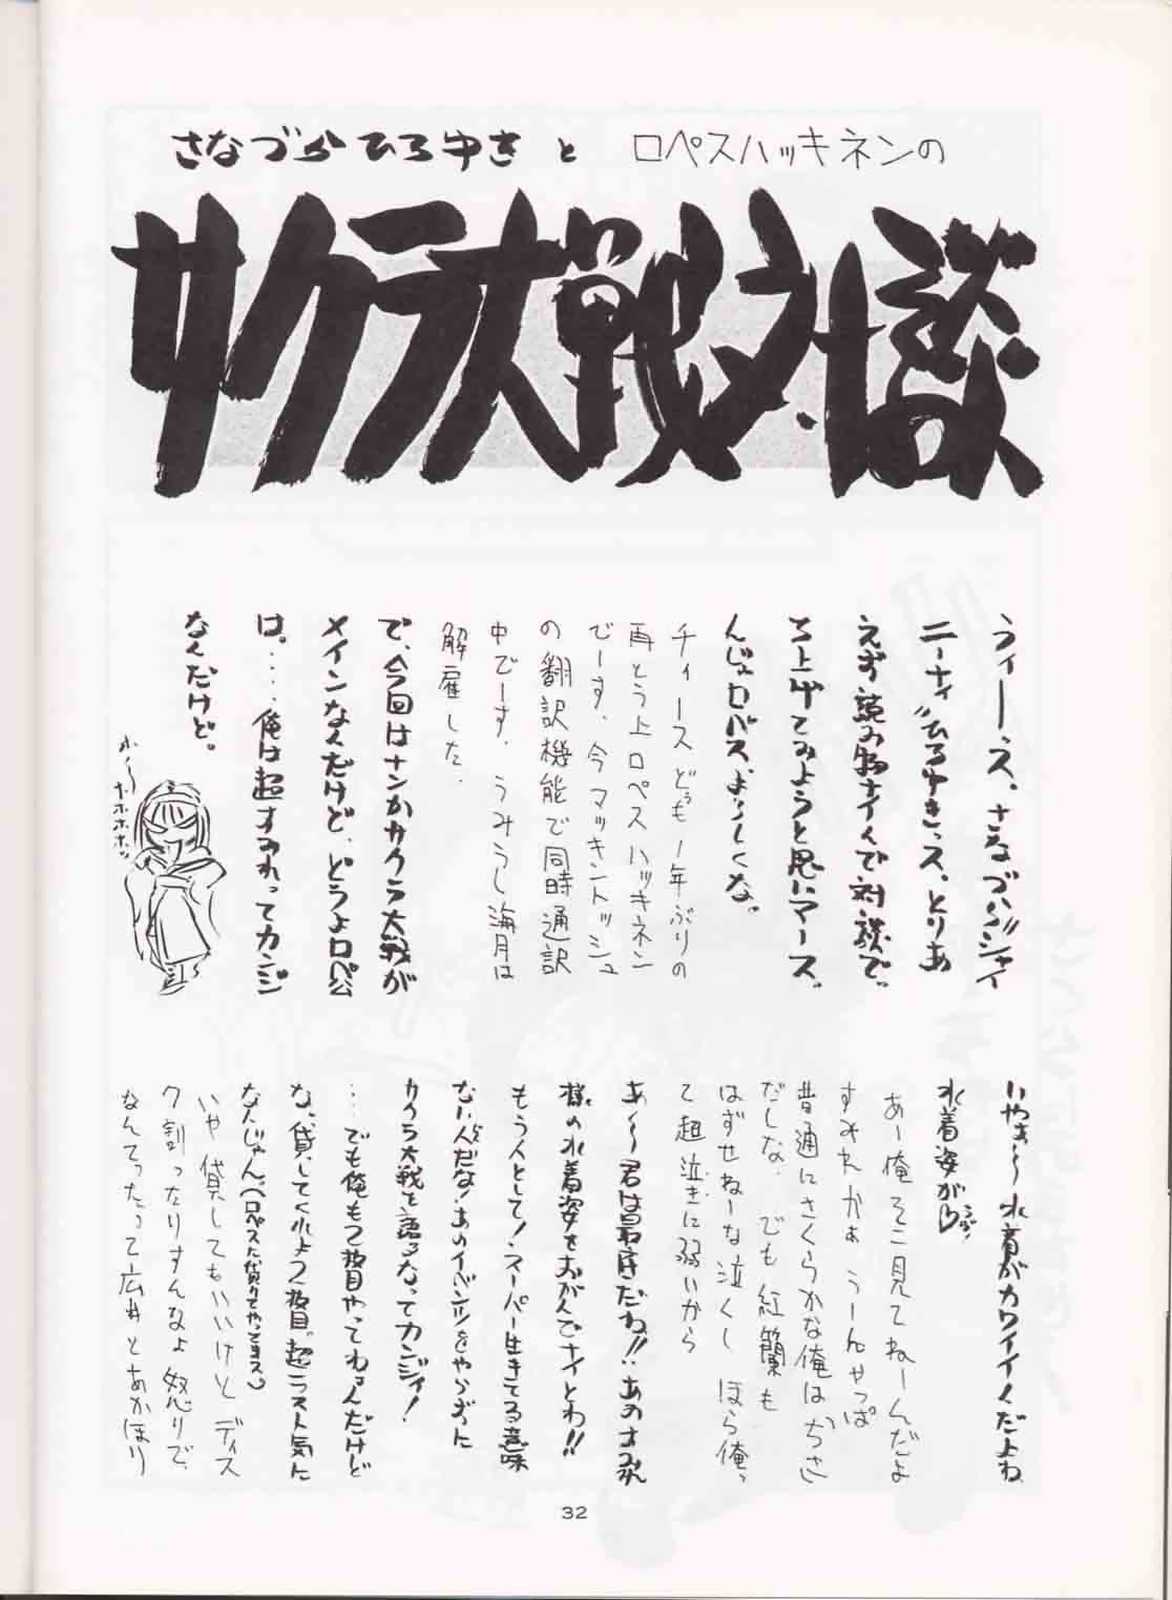 さなづらひろゆき と ロペスハッキネンの
サクラ大戦対談
うぃーース。さなづら"シャイ
ニーナイ"ひろゆきっス。とりあ
えず読み物ナイんで対談で
も上げてみようと思いマース。
んじゃロバスよろしくな。
チィースどぅも1年ぶりの
再とう上ロペスハッキネン
でーす。今マッキントッシュ
の翻訳機能で同時通訳
中でーす。うみうし海月は
解雇した。
で、今回はナンかサクラ大戦が
メインなんだけど、どうよロペ公
は。‥‥俺は超すみれってカンジ
なんだけど。
ホ〜ホホホホッ
いやぁ〜水着がカワイイんだよね
水着姿が♡
あー俺そこ見てねーんだよ
すみれかぁ うーんやっぱ
普通にさくらかな俺はおさ
だしな。でも紅蘭も
はずせねーな泣くし ほら俺っ
て超泣きに弱いから
あ〜〜君は最底だね!!‥あのすみれ
様の水着姿をおがんでナイとわ!!
もう人として!スーパー生きてる意味
ない人だな!あのイベントをやらずに
サクラ大戦を語るなってカンジィ!
‥‥でも俺もう2枚目やってるんだけど
な、貸してくれよう2枚目"超ラスト気に
なんじゃん。(ロペスに貸りてやってまス。)
いや 貸してもいいけど ディス
ク割ったりすんなよ 怒りで。
なんてったって広井とあかほり
32